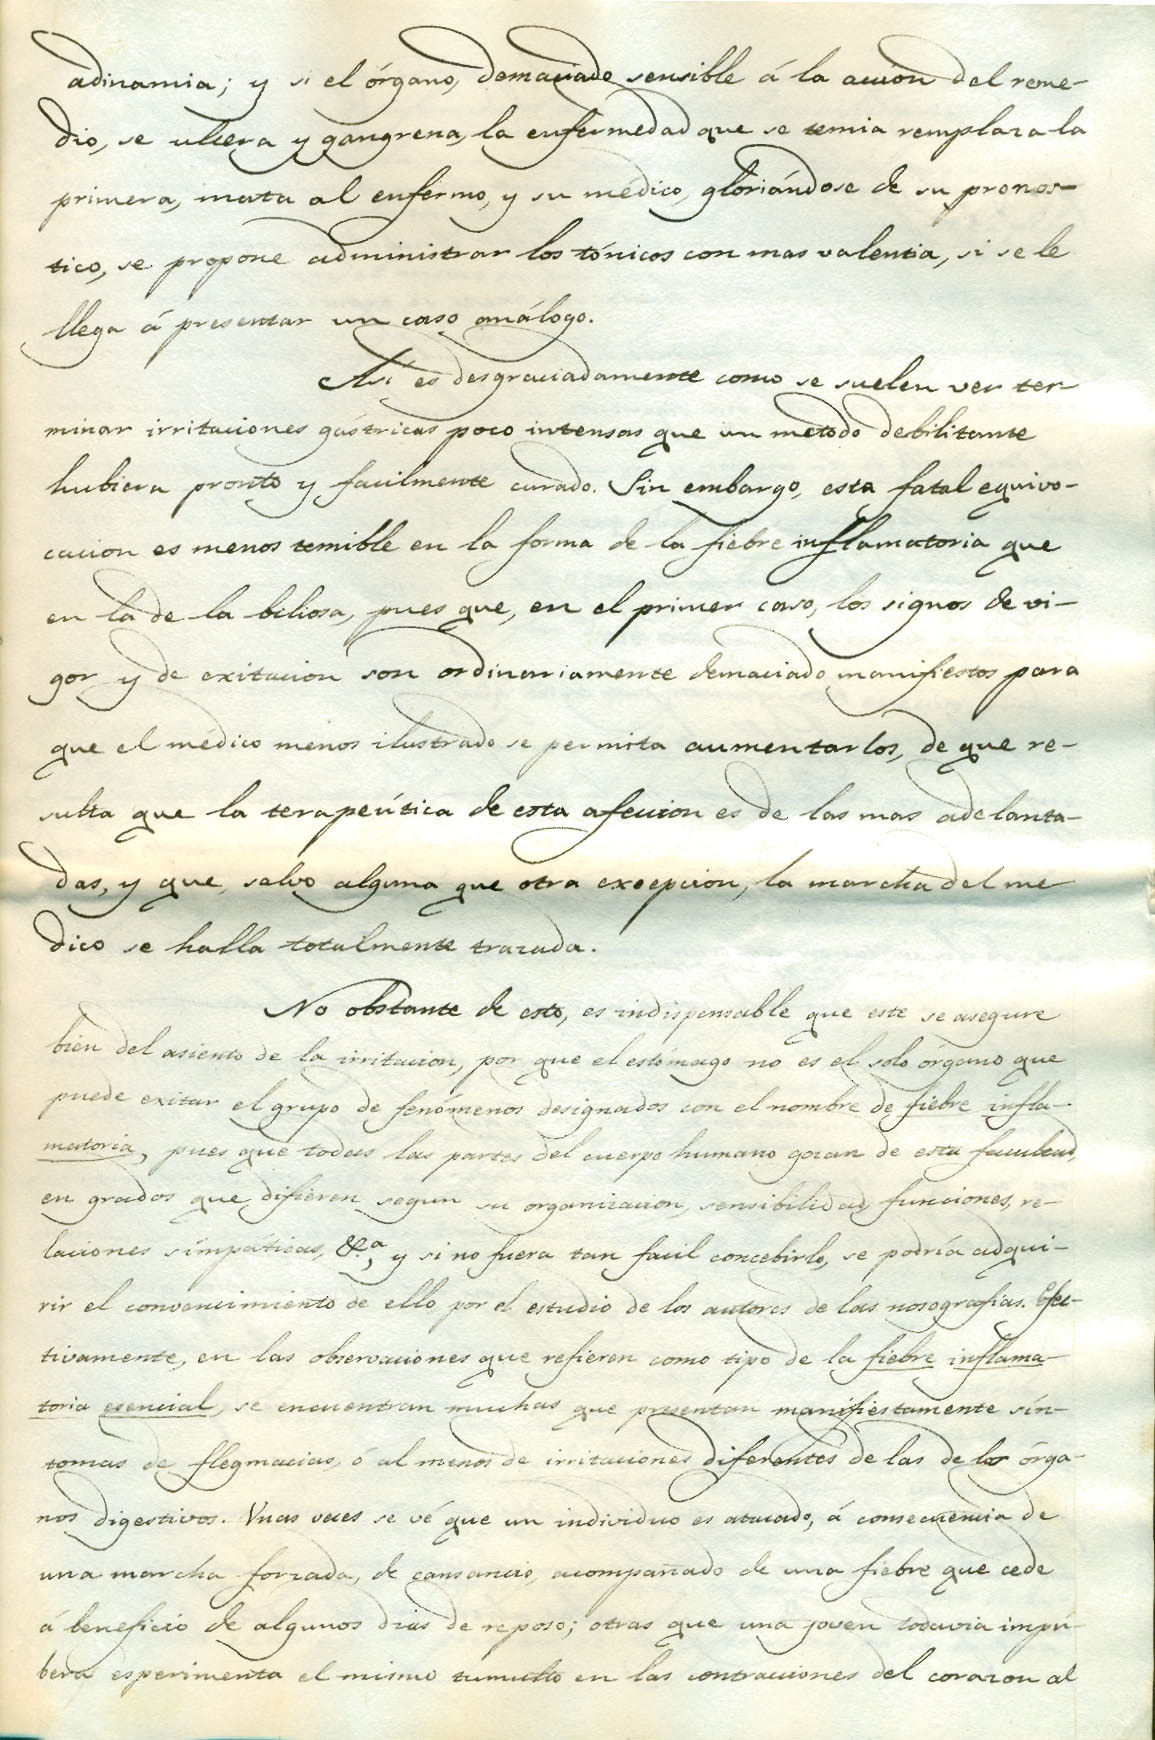 adinamia; y si el órgano, demaciado sensible á la accion del reme-
dio, se ulcera y gangrena, la enfermedad que se temia remplaza la
primera, mata al enfermo, y su médico, gloriándose de su pronos-
tico, se propone administrar los tónicos con mas valentia, si se le
llega á presentar un caso análogo.
Asi es desgraciadamente como se suelen ver ter-
minar irritaciones gástricas poco intensas que un metodo debilitante
hubiera pronto y facilmente curado. Sin embargo, esta fatal equivo-
cacion es menos temible en la forma de la fiebre inflamatoria que
en la de la biliosa, pues que, en el primer caso, los signos de vi-
gor y de exitacion son ordinariamente demaciado manifiestos para
que el médico menos ilustrado se permita aumentarlos, de que re-
sulta que la terapeútica de esta afeccion es de las mas adelanta-
das, y que, salvo alguna que otra excepcion, la marcha del me
dico se halla totalmente trazada.
No obstante de esto, es indispensable que este se asegure
bien del asiento de la irritacion, por que el estómago no es el solo órgano que
puede exitar el grupo de fenómenos designados con el nombre de fiebre infla-
matoria, pues que todas las partes del cuerpo humano gozan de esta facultad,
en grados que difieren segun su organizacion, sensibilidad, funciones, re-
laciones simpáticas, &.ª, y si no fuera tan facil concebirlo, se podría adqui-
rir el convencimiento de ello por el estudio de los autores de las nosografias. Efec-
tivamente, en las observaciones que refieren como tipo de la fiebre inflama-
toria esencial, se encuentran muchas que presentan manifiestamente sín-
tomas de flegmacias, ó al menos de irritaciones diferentes de las de los órga-
nos digestivos. Unas veces se vé que un individuo es atacado, á consecuencia de
una marcha forzada, de cansancio, acompañado de una fiebre que cede
á beneficio de algunos dias de reposo; otras que una joven todavia impú-
bera esperimenta el mismo tumulto en las contracciones del corazon al